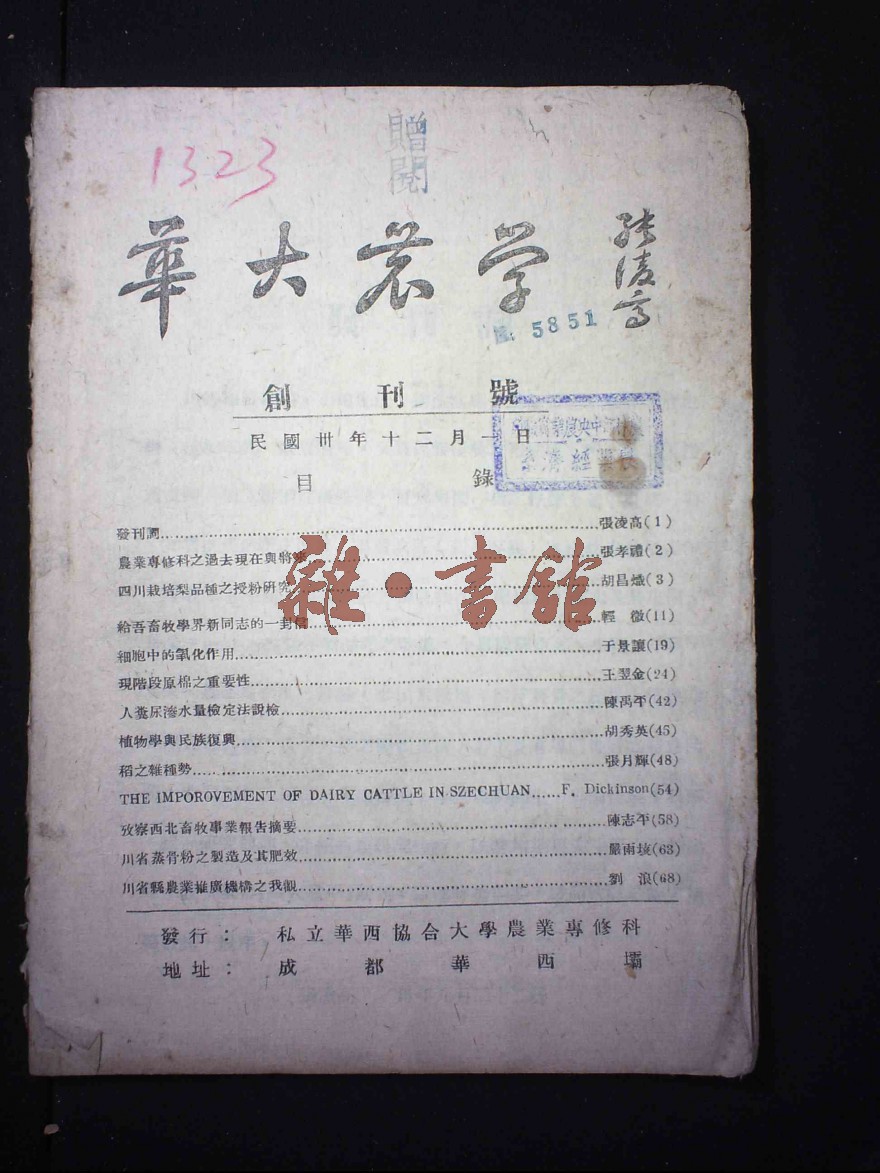 贈閱
1323
華大農学
張凌高
№ 5851
創刊號
民國卅年十二月一日
目錄
發刊詞……張凌高(1)
農業專修科之過去現在與將來……張孝禮(2)
四川栽培梨品種之授粉研究……胡昌熾(3)
給吾畜牧學界新同志的一封信……輕微(11)
細胞中的氧化作用……于景讓(19)
現階段原棉之重要性……王翌金(24)
人糞尿滲水量檢定法設檢……陳禹平(42)
植物學與民族復興……胡秀英(45)
稻之雜種勢……張月輝(48)
THE IMPOROVEMENT OF DAIRY CATTLE IN SZECHUAN……F. Dickinson(54)
攷察西北畜牧事業報告摘要……陳志平(58)
川省蒸骨粉之製造及其肥效……嚴雨(63)
川省縣農業推廣機構之我觀……劉浪(68)
發行：私立華西協合大學農業專修科
地址：成都華西壩
雜·書館